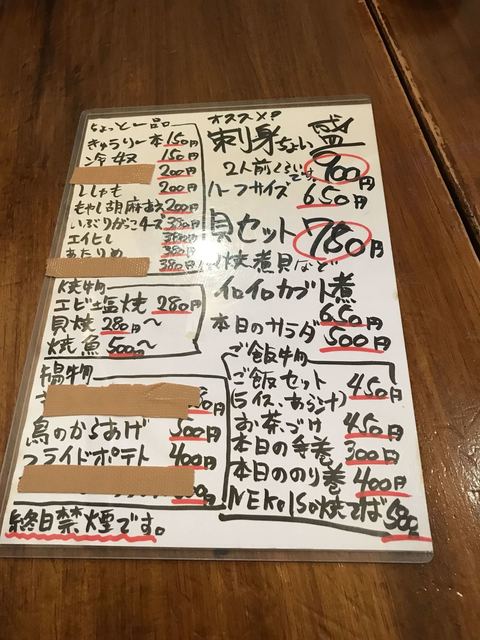 ちょっと一品
きゅうり一本 150円
冷奴 150円
200円
ししゃも 200円
もやし胡麻和え 200円
いぶりがっこチーズ 380円
エイヒレ
あたりめ
380円
焼物
エビ塩焼 280円
貝焼 280円〜
焼魚 500円〜
揚物
鳥のからあげ 500円
フライドポテト 400円
終日禁煙です。
オススメ!?
刺身ちょい盛
2人前くらいです。 900円
ハーフサイズ 650円
貝セット 780円
焼煮貝など
イロイロカブト煮
650円
本日のサラダ 500円
ご飯物
ご飯セット 450円
(ライス、あら汁)
お茶づけ 450円
本日の手巻 300円
本日ののり巻 400円
NEKO ISO焼そば 500